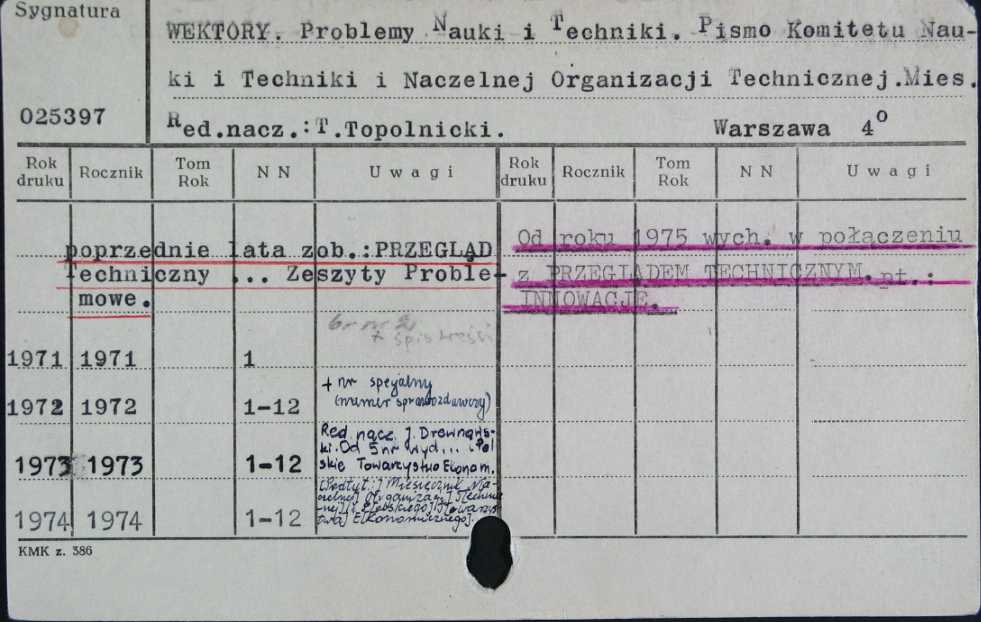 Sygnatura
WEKTORY. Problemy Nauki i Techniki. Pismo Komitetu Nau-
ki i Techniki i Naczelnej Organizacji Technicznej.Mies.
025397
Red.nacz.:T.Topolnicki. Warszawa 4o
Rok druku Rocznik Tom Rok N N Uwagi Rok druku Rocznik Tom Rok N N Uwagi
poprzednie lata zob.:PRZEGLĄD
Techniczny ... Zeszyty Proble-
mowe.
Od roku 1975 wych. w połączeniu
z PRZEGLĄDEM TECHNICZNYM. pt.:
INNOWACJE.
br nr 2
+ spis treści
1971 1971 1
+ nr specjalny
1972 1972 1-12 (numer sprawozdawczy)
Red. nacz. J. Drewnows-
ki. Od 5 nr wyd... Pol
1973 1973 1-12 skie Towarzystwo Ekonom.
Miesięcznik Na-
czelnej Organizacji Technicz
nej i
1974 1974 1-12 Ekonomicznego].
KMK z. 386